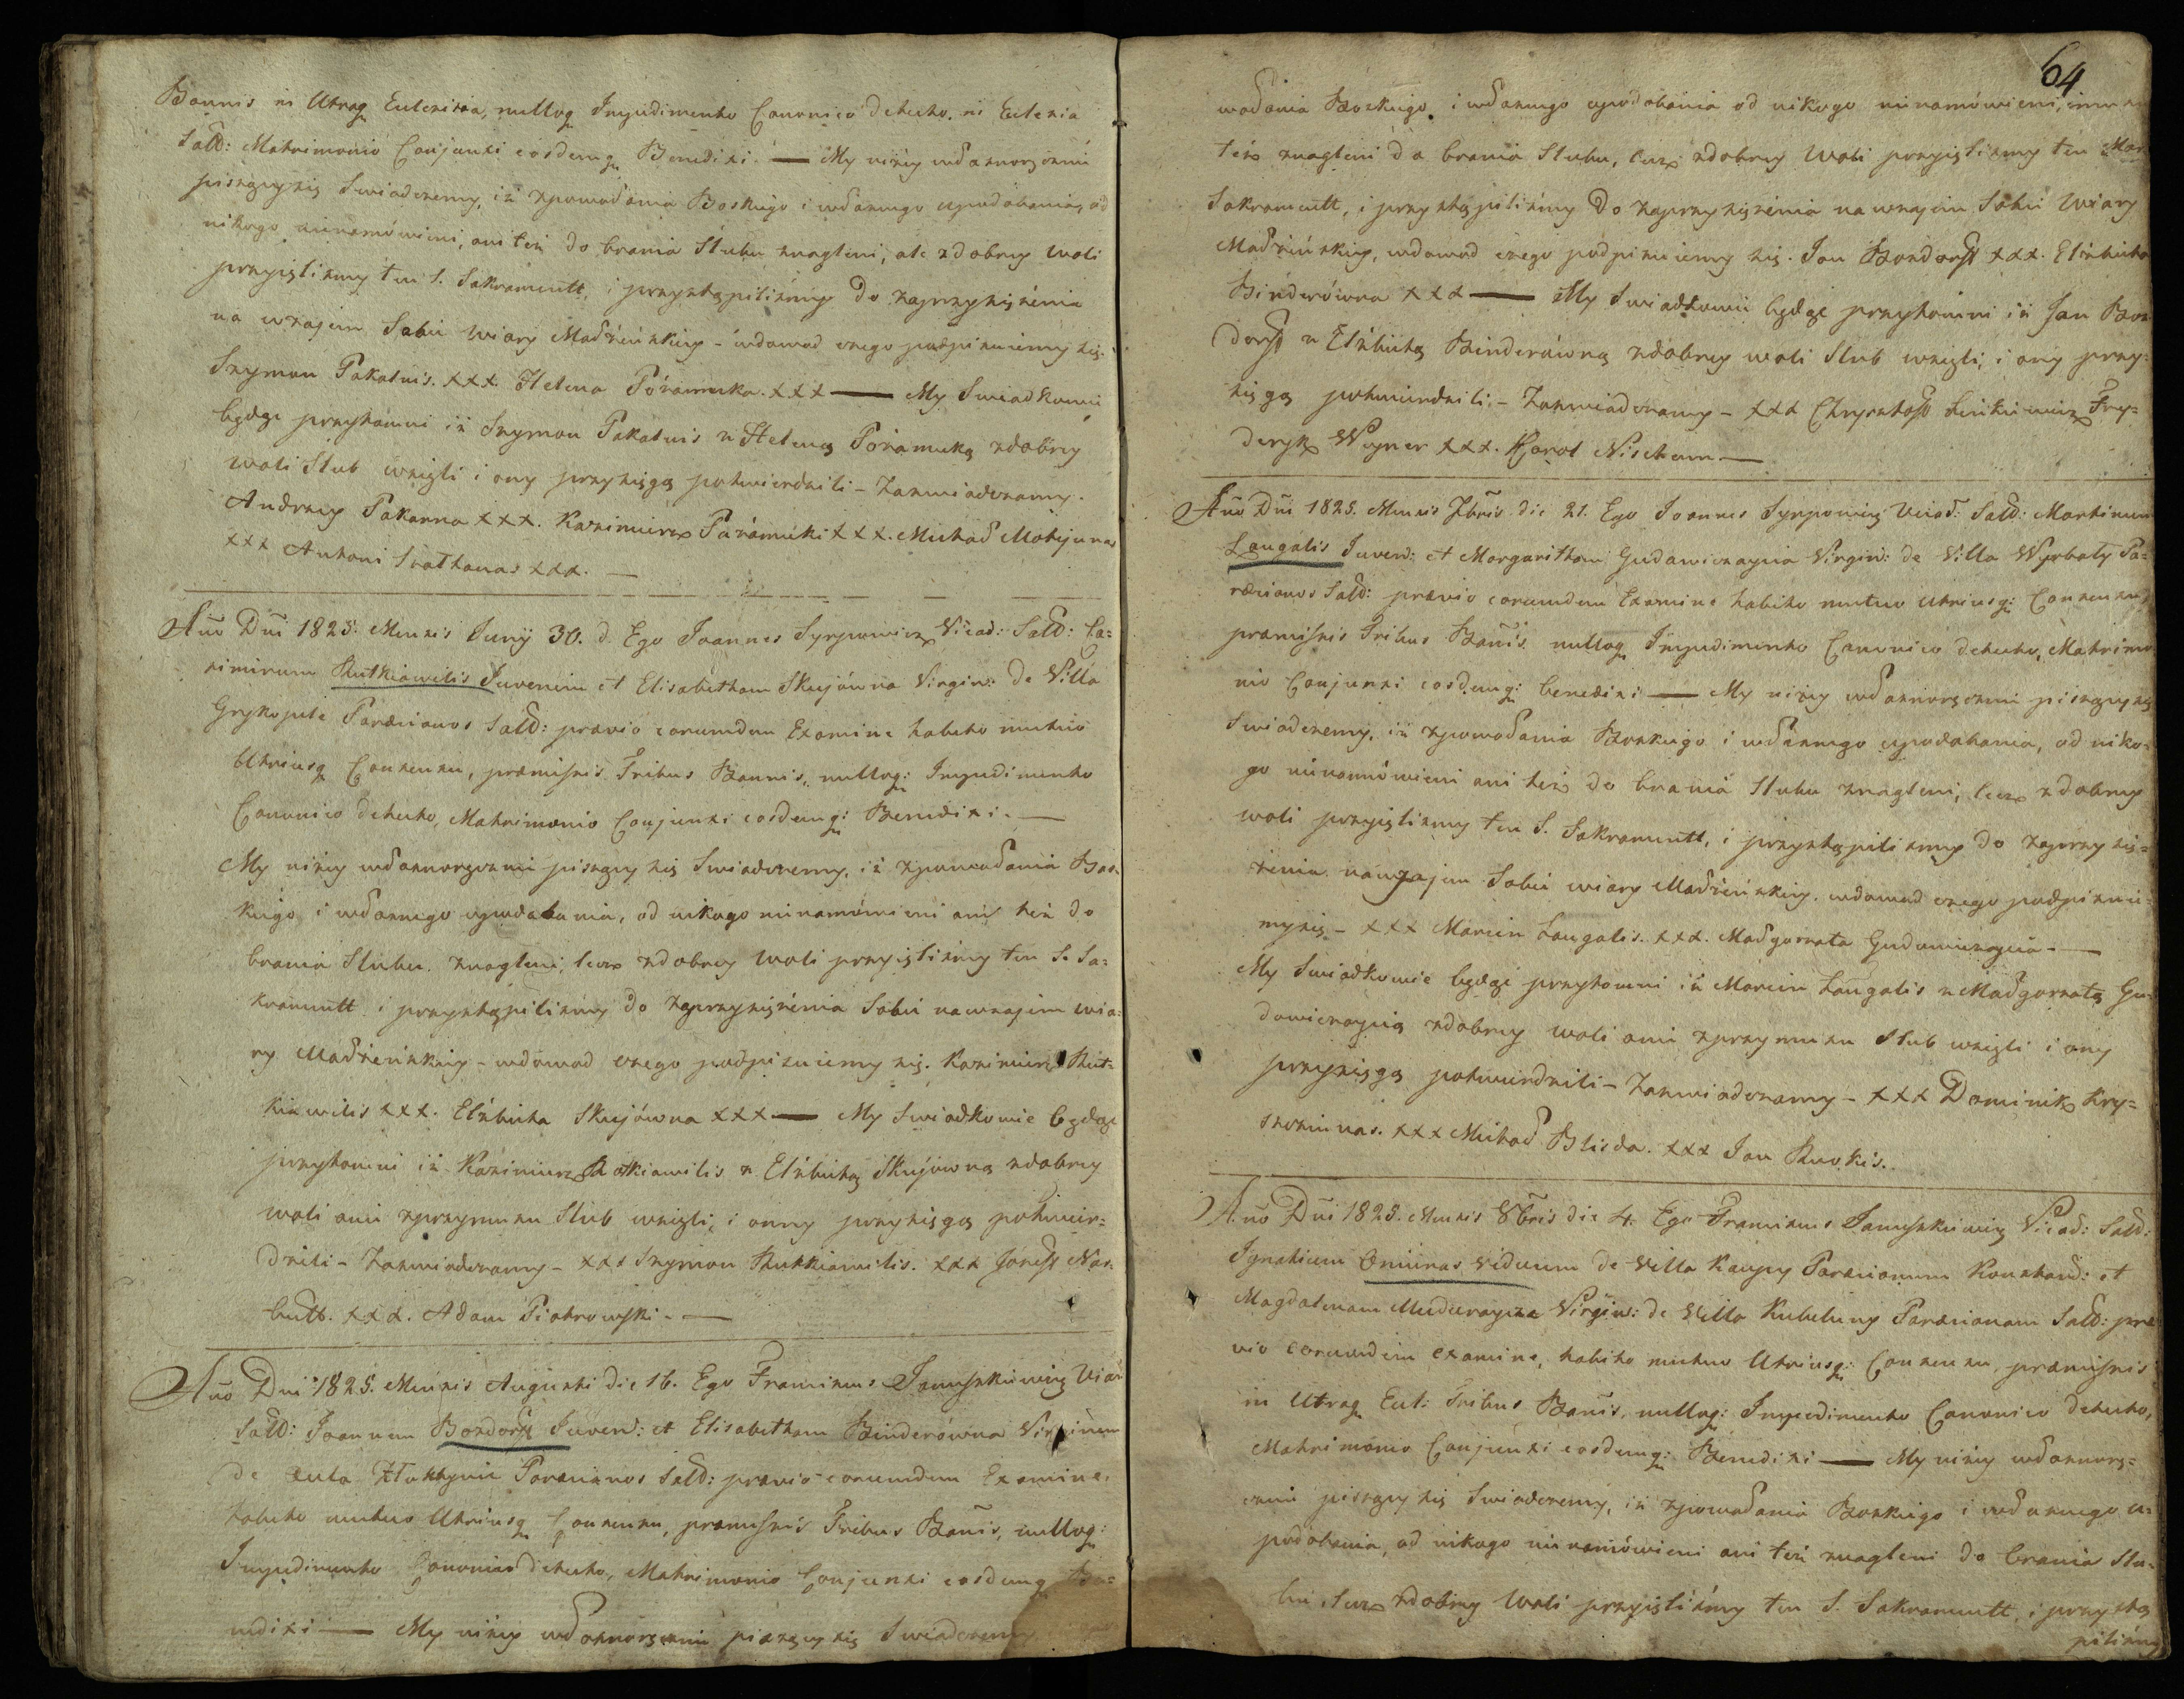 Bannis in Utraq Eclesiaa, nulloq Impedimento Canonico detecto, in Eclesia
Sald: Matrimonio Conjunxi eosdemq Benedixi. — My niżey własnoręcznie
pisząyący się Swiadczemy, iż zpowodania Boskiego i własnego upodobania, od
nikogo nienamówieni, ani też do brania Slubu znagleni, ale zdobrey woli
przyięlismy ten S. Sakramentt, i przystąpilismy do zaprzysiężenia
na wzajem Sobie wiary Małżeńskiey – wdowod czego podpisuiemy się.
Szymon Pakalnis. xxx. Helena Pożamska. xxx — My Swiadkowie
będąc przytomni iż Szymon Pakalnis z Heleną Pożamską zdobrey
woli Slub wzięli i ony przysięgą potwierdzili – Zaswiadczamy.
Andrzey Pakarna xxx. Kazimierz Pożamski xxx. Michał Motijunas
xxx Antoni Szatkauas xxx. —
Año Dñi 1825. Mensis Junij 30. d. Ego Joannes Syrpowicz Vicad: Sald: Ca=
simirum Rutkiawilis Juvenem et Elisabetham Skujówna Virgin: de Villa
Grykopele Paræcianos Sald: prævio eorumdem Examine habito mutuo
Utriusq Consensu, præmissis Tribus Bannis, nulloq: Impedimento
Canonico detecto, Matrimonio Conjunxi eosdemq: Benedixi. —
My niżey własnoręcznie pisząyący się Swiadczemy, iż zpowodania Bos=
kiego i własnego upodobania, od nikogo nienamówieni ani też do
brania Slubu znagleni, lecz zdobrey woli przyięlismy ten S. Sa=
kramentt i przystąpilismy do zaprzysiężenia Sobie nawzajem wia=
ry Małżeńskiey – wdowod czego podpisuiemy się. Kazimierz Rut=
kiawilis xxx. Elżbieta Skujówna xxx — My Swiadkowie będąc
przytomni iż Kazimierz Rutkiawilis z Elżbietą Skujówną zdobrey
woli ani zprzymusu Slub wzięli, i onny przysięgą potwier=
dzili – Zaswiadczamy – xxx Szymon Rutkiawilis. xxx Jozeff Nar=
butt. xxx. Adam Piotrowski. —
Año Dñi 1825. Mensis Augusti die 16. Ego Franciscus Januszkiewicz Vicad
Sald: Joannem Bordorff Juven: et Elisabetham Binderówna Virginem
de Paræcianos Sald: prævio eorumdem Examine,
habito mutuo Utriusq Consensu, præmissis Tribus Bañis, nulloq:
Impedimento Canonico detecto, Matrimonio Conjunxi eosdemq Be=
nedixi — My niżey własnoręcznie pisząyący się Swiadczemy
64
wodania Boskiego, i własnego upodobania od nikogo nienamówieni,
też znagleni do brania Slubu, lecz zdobrey Woli przyięlismy ten
Sakramentt, i przystąpilismy do zaprzysiężenia nawzajem Sobie Wiary
Małżeńskiey, wdowod czego podpisuiemy się. Jan Bordorff xxx. Elżbieta
Binderówna xxx — My Swiadkowie będąc przytomni iż Jan Bor=
dorff z Elżbietą Binderówną zdobrey woli Slub wzięli, i ony przy=
sięgą potwierdzili. – Zaswiadczamy – xxx Chrysztoff Fry=
deryk Wegner xxx. Karol Nischam —
Año Dñi 1825. Mensis 7bris die 21. Ego Joannes Syrpowicz Vicad: Sald: Martinum
Laugalis Juven: et Margaritham Gudawiczaycia Virgin: de Villa Wyrbaty Pa=
ræcianos Sald: prævio eorumdem Examine habito mutuo Utriusq: Consensu,
præmissis Tribus Bañis nulloq Impedimento Canonico detecto, Matrimo
nio Conjunxi eosdemq: benedixi — My niżey własnoręcznie pisząyący
Swiadczemy, iż zpowodania Boskiego i własnego upodobania, od niko=
go nienamówieni ani też do brania Slubu znagleni, lecz zdobrey
woli przyięlismy ten S. Sakramentt, i przystąpilismy do zaprzysię=
żenia nawzajem Sobie wiary Małżeńskiey, wdowod czego podpisuie=
mysię – xxx Marcin Laugalis. xxx. Małgorzata Gudawiczaycia —
My Swiadkowie będąc przytomni iż Marcin Laugalis z Małgorzatą Gu=
dawiczaycią zdobrey woli ani zprzymusu Slub wzięli i ony
przysięgą potwierdzili – Zaswiadczamy – xxx Dominik Kry=
xxx Michał Blieda. xxx Jan Ruokis.
Año Dñi 1825. Mensis 8bris die 4. Ego Franciscus Januszkiewicz Vicad: Sald:
Ignatium Oniunas viduum de Villa Kaupy Paræcianum Konstand: et
Magdalenam Virgin: de Villa Kubeluny Paræcianam Sald: præ
vio eorumdem examine, habito mutuo Utriusq: Consensu, præmissis
in Utraq Ecl: Tribus Bañis, nulloq: Impedimento Canonico detecto,
Matrimonio Conjunxi eosdemq: Benedixi — My niżey własnorę=
cznie pisząyący się Swiadczemy, iż zpowodania Boskiego i własnego u=
podobania, od nikogo nienamówieni ani też znagleni do brania Slu=
bu, lecz zdobrey Woli przyięlismy ten S. Sakramentt, i przystą
pilismy